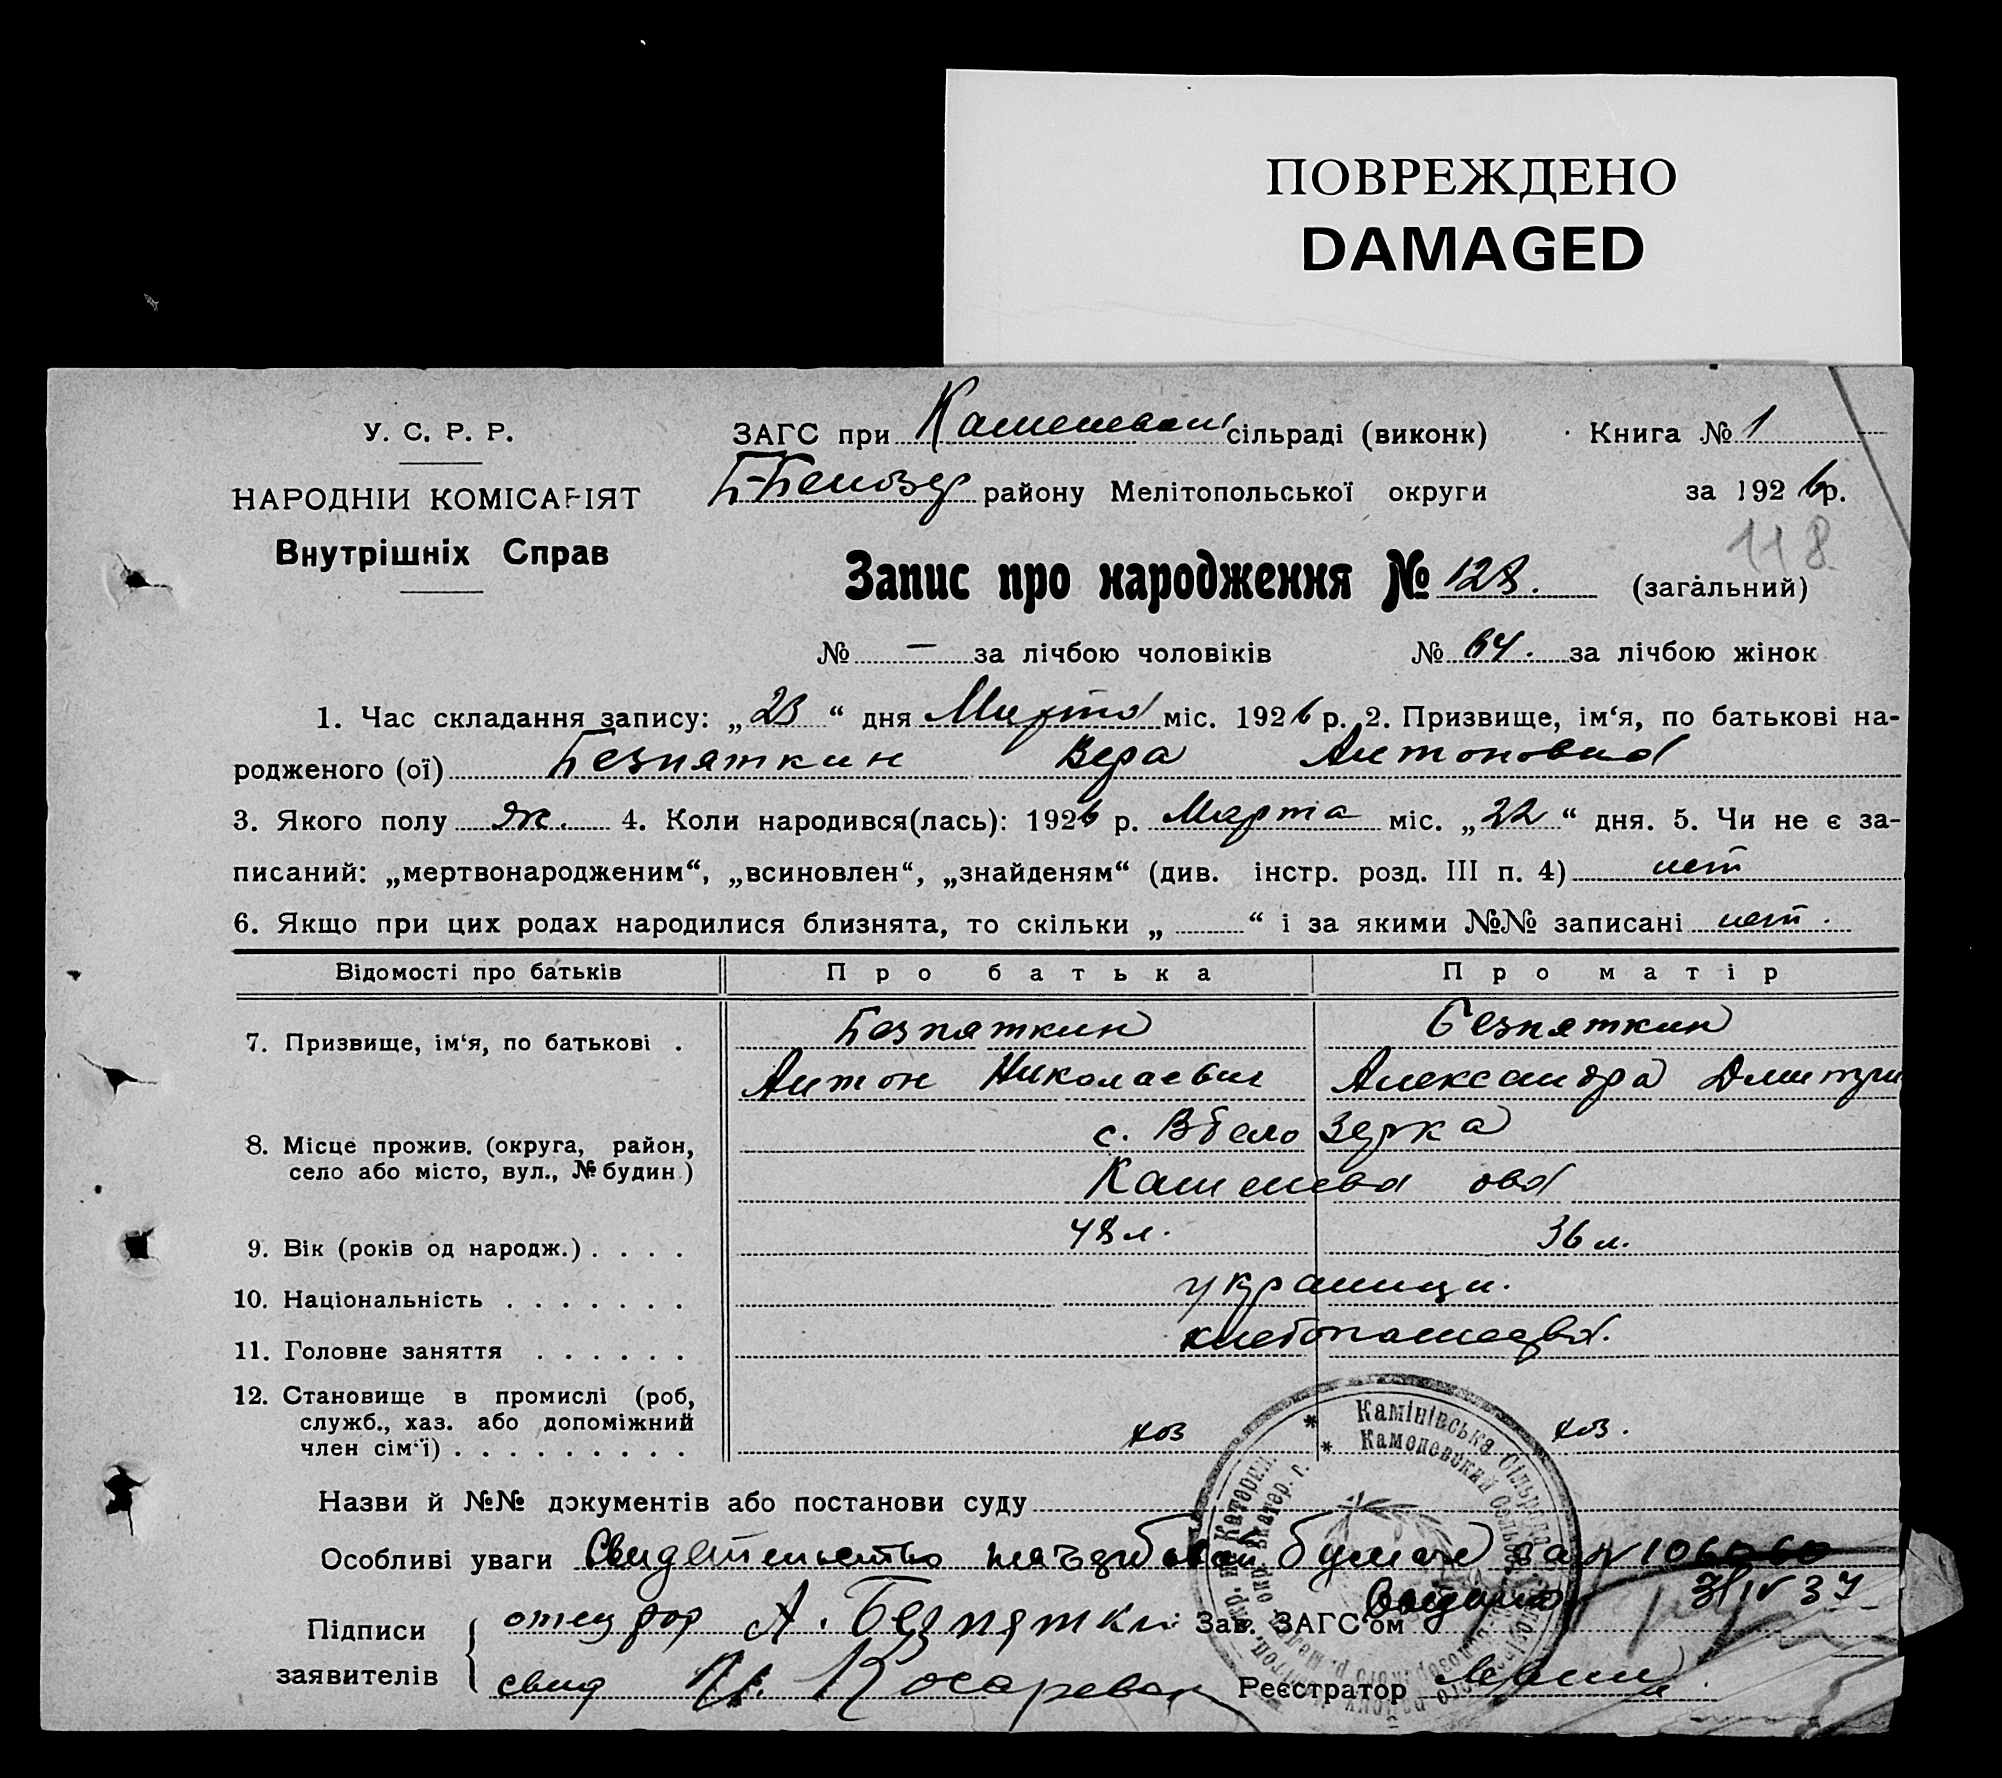 ПОВРЕЖДЕНО
DAMAGED
У. С. Р. Р.
НАРОДНІЙ КОМІСАРІЯТ
Внутрішніх Справ
ЗАГС при сільраді (виконк) Книга № 1
району Мелітопольської округи за 1926 р.
118
Запис про народження № 128. (загальний)
№ — за лічбою чоловіків № 64. за лічбою жінок
1. Час складання запису: „23“ дня Марта міс. 1926 р. 2. Призвище, ім‘я, по батькові на-
родженого (ої) Безпяткин Вера Антоновна
3. Якого полу ж. 4. Коли народився(лась): 1926 р. Марта міс. „22“ дня. 5. Чи не є за-
писаний: „мертвонародженим“, „всиновлен“, „знайденям“ (див. інстр. розд. III п. 4) нет
6. Якщо при цих родах народилися близнята, то скільки „ “ і за якими №№ записані нет.
Відомості про батьків Про батька Про матір
7. Призвище, ім‘я, по батькові . Безпяткин Безпяткин
Антон Николаевич Александра Дмитри
8. Місце прожив. (округа, район, село або місто, вул., № будин.) с. Вбело Зерка
9. Вік (років од народж.) . . . . 48 л. 36 л.
10. Національність . . . . . . . украинци.
11. Головне заняття . . . . . . хлебопашедва.
12. Становище в промислі (роб, служб., хаз. або допоміжний член сім‘ї) . . . . . . . . . хоз хоз.
Камінівська Сільрада
Каменевский
Назви й №№ документів або постанови суду
Особливі уваги Свидетельство бумаге за № 106060
31/IV 37
Підписи заявителів отец А. Безпяткин Зав. ЗАГС‘ом
свид И. Косарева Реєстратор